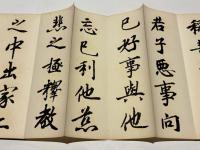 稱
君子悪事向
己好事與他
忘己利他慈
悲之極釋教
之中出家二